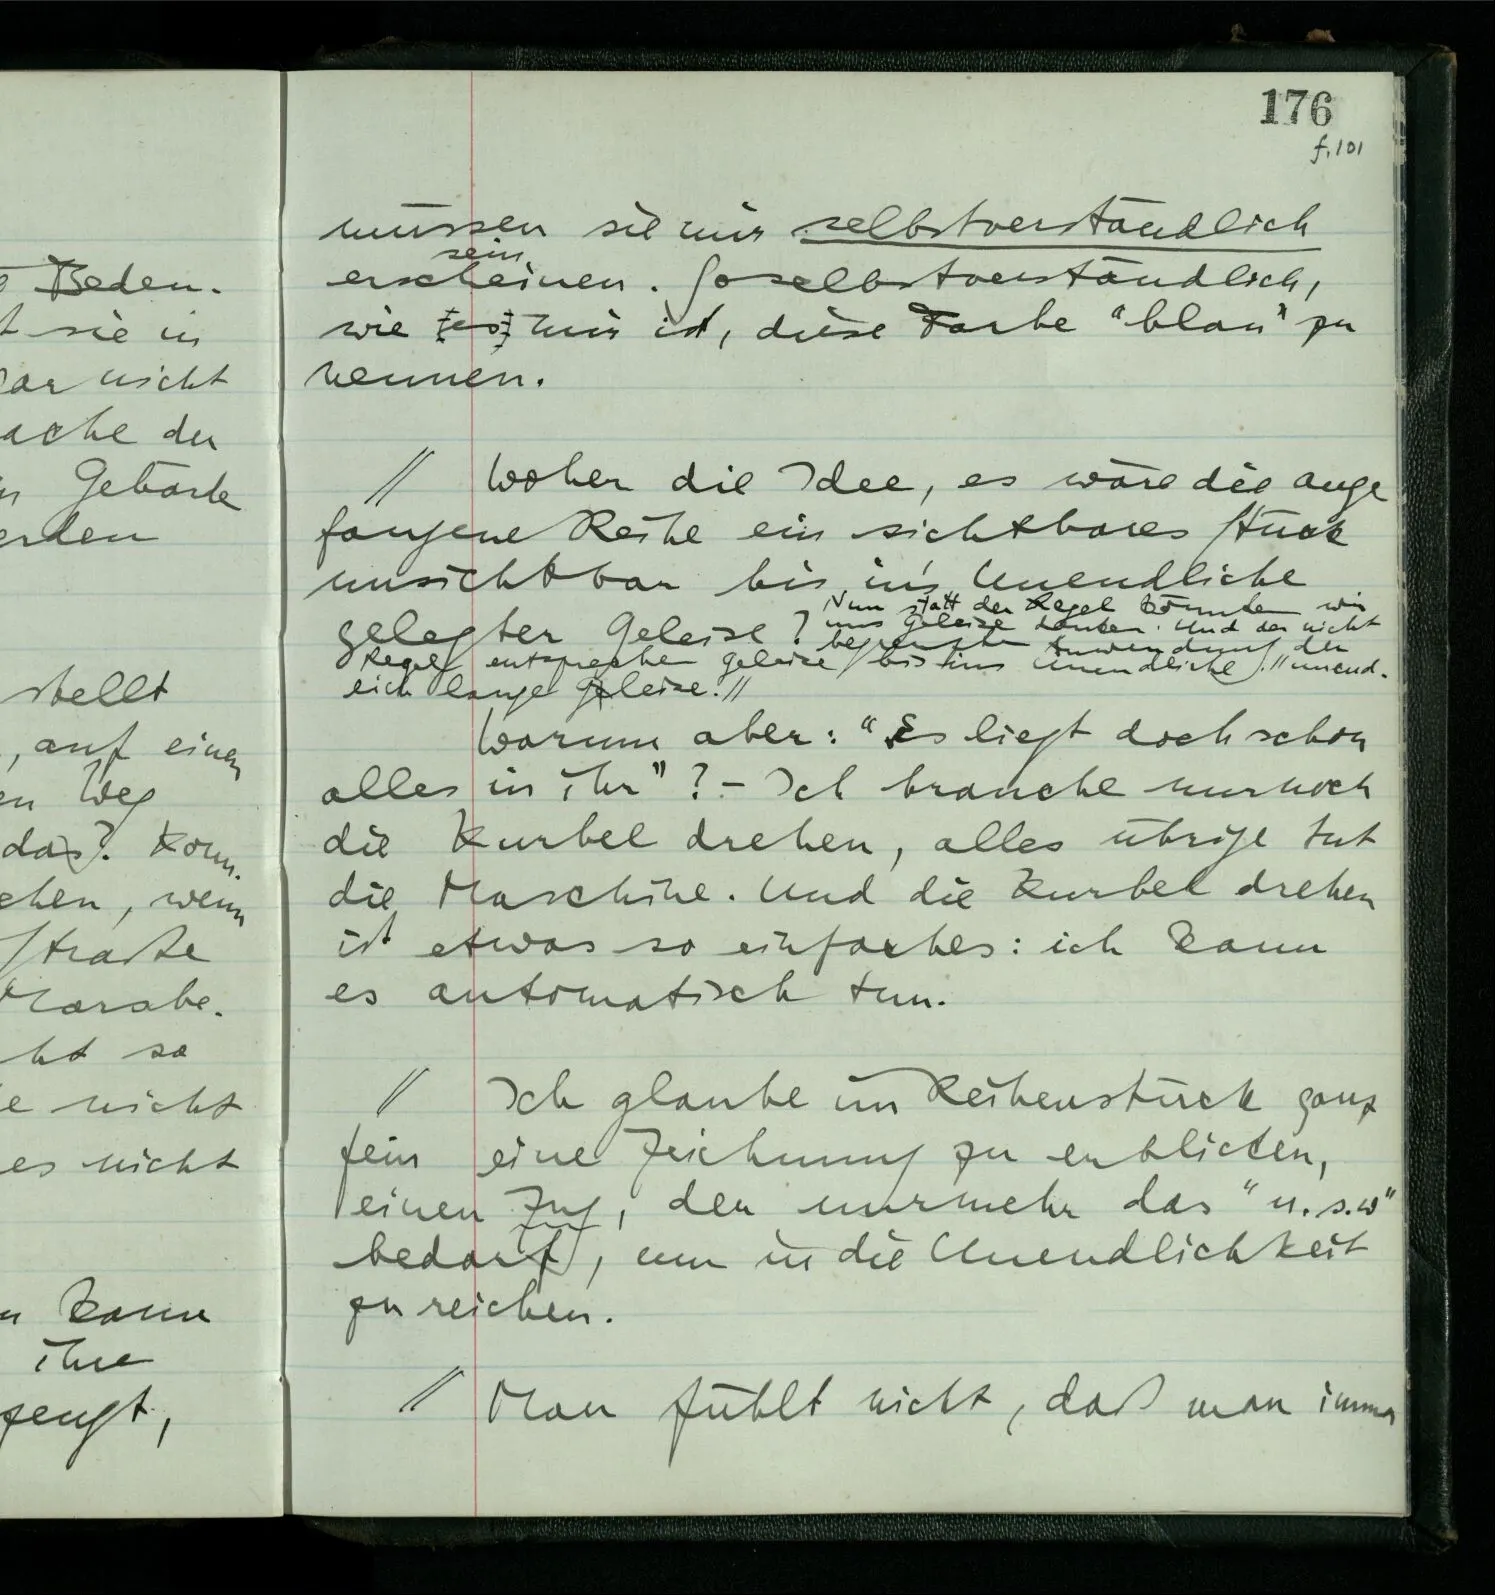 176
f. 101
müssen sie mir selbstverständlich
sein
erscheinen. So selbstverständlich,
wie es mir ist, diese Farbe "blau" zu
nennen.
// Woher die Idee, es wäre die ange
fangene Reihe ein sichtbares Stück
unsichtbar bis in's Unendliche
gelegter Geleise?
Nun statt der Regel könnten wir
uns Geleise denken. Und der nicht
begrenzten Anwendung der
Regel entsprechen Geleise bis ins Unendliche. // unend-
lich lange Geleise. //
Warum aber: "Es liegt doch schon
alles in ihr"? – Ich brauche nur noch
die Kurbel drehen, alles übrige tut
die Maschine. Und die Kurbel drehen
ist etwas so einfaches: ich kann
es automatisch tun.
// Ich glaube im Reihenstück ganz
fein eine Zeichnung zu erblicken,
einen Zug, der nurmehr das "u.s.w"
bedarf, um in die Unendlichkeit
zu reichen.
// Man fühlt nicht, daß man immer
Beden-
t sie in
ar nicht
ache der
Gebärde
erden
stellt
, auf einen
en Weg
das? Könn-
chen, wenn
Straße
Marabe.
ht so
e nicht
es nicht
kann
ihre
zeugt,